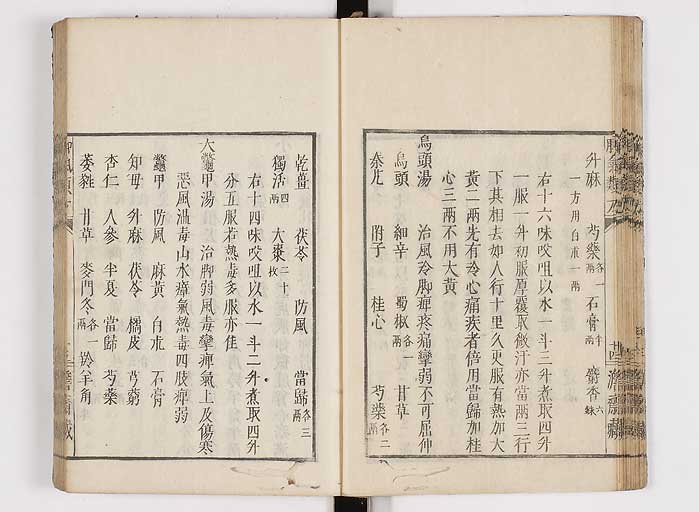 升麻 芍藥各一兩 石膏半兩 麝香六銖
一方用白朮一兩
右十六味㕮咀以水一斗三升煮取四升
一服一升初服厚覆取微汗亦當兩三行
下其相去如人行十里久更服有熱加大
黃二兩先有冷心痛疾者倍用當歸加桂
心三兩不用大黃
烏頭湯 治風冷脚痺疼痛攣弱不可屈伸
烏頭 細辛 蜀椒各一兩 甘草
秦艽 附子 桂心 芍藥各二兩
乾薑 茯苓 防風 當歸各三兩
獨活四兩 大棗二十枚
右十四味㕮咀以水一斗二升煮取四升
分五服若熱毒多服亦佳
大鱉甲湯 治脚弱風毒攣痺氣上及傷寒
惡風溫毒山水瘴氣熱毒四肢痺弱
鱉甲 防風 麻黃 白朮 石膏
知母 升麻 茯苓 橘皮 芎藭
杏仁 人參 半夏 當歸 芍藥
萎蕤 甘草 麥門冬各一兩 羚羊角